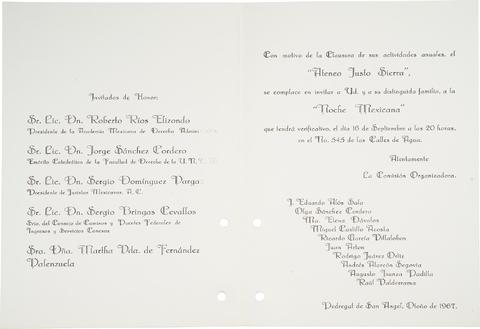 Invitados de Honor:
Sr. Lic. Dn. Roberto Ríos Elizondo
Presidente de la Academia Mexicana de Derecho
Sr. Lic. Dn. Jorge Sánchez Cordero
Emérito Catedrático de la Facultad de Derecho de la U. N.
Sr. Lic. Dn. Sergio Domínguez Vargas
Presidente de Juristas Mexicanos, A. C.
Sr. Lic. Dn. Sergio Bringas Cevallos
Srio. del Consejo de Caminos y Puentes Federales de
Ingresos y Servicios Conexos
Sra. Dña. Martha Vda. de Fernández
Valenzuela
Con motivo de la Clausura de sus actividades anuales, el
"Ateneo Justo Sierra",
se complace en invitar a Ud. y a su distinguida familia, a la
"Noche Mexicana"
que tendrá verificativo, el día 16 de Septiembre a las 20 horas,
en el No. 545 de las Calles de Agua.
Atentamente
La Comisión Organizadora.
J. Eduardo Alós Sala
Olga Sánchez Cordero
Ma. Elena Dávalos
Miguel Castillo Acosta
Ricardo García Villalobos
Juan Artón
Rodrigo Juárez Ortiz
Andrés Alarcón Segovia
Augusto Isunza Padilla
Raúl Valderrama
Pedregal de San Angel, Otoño de 1967.